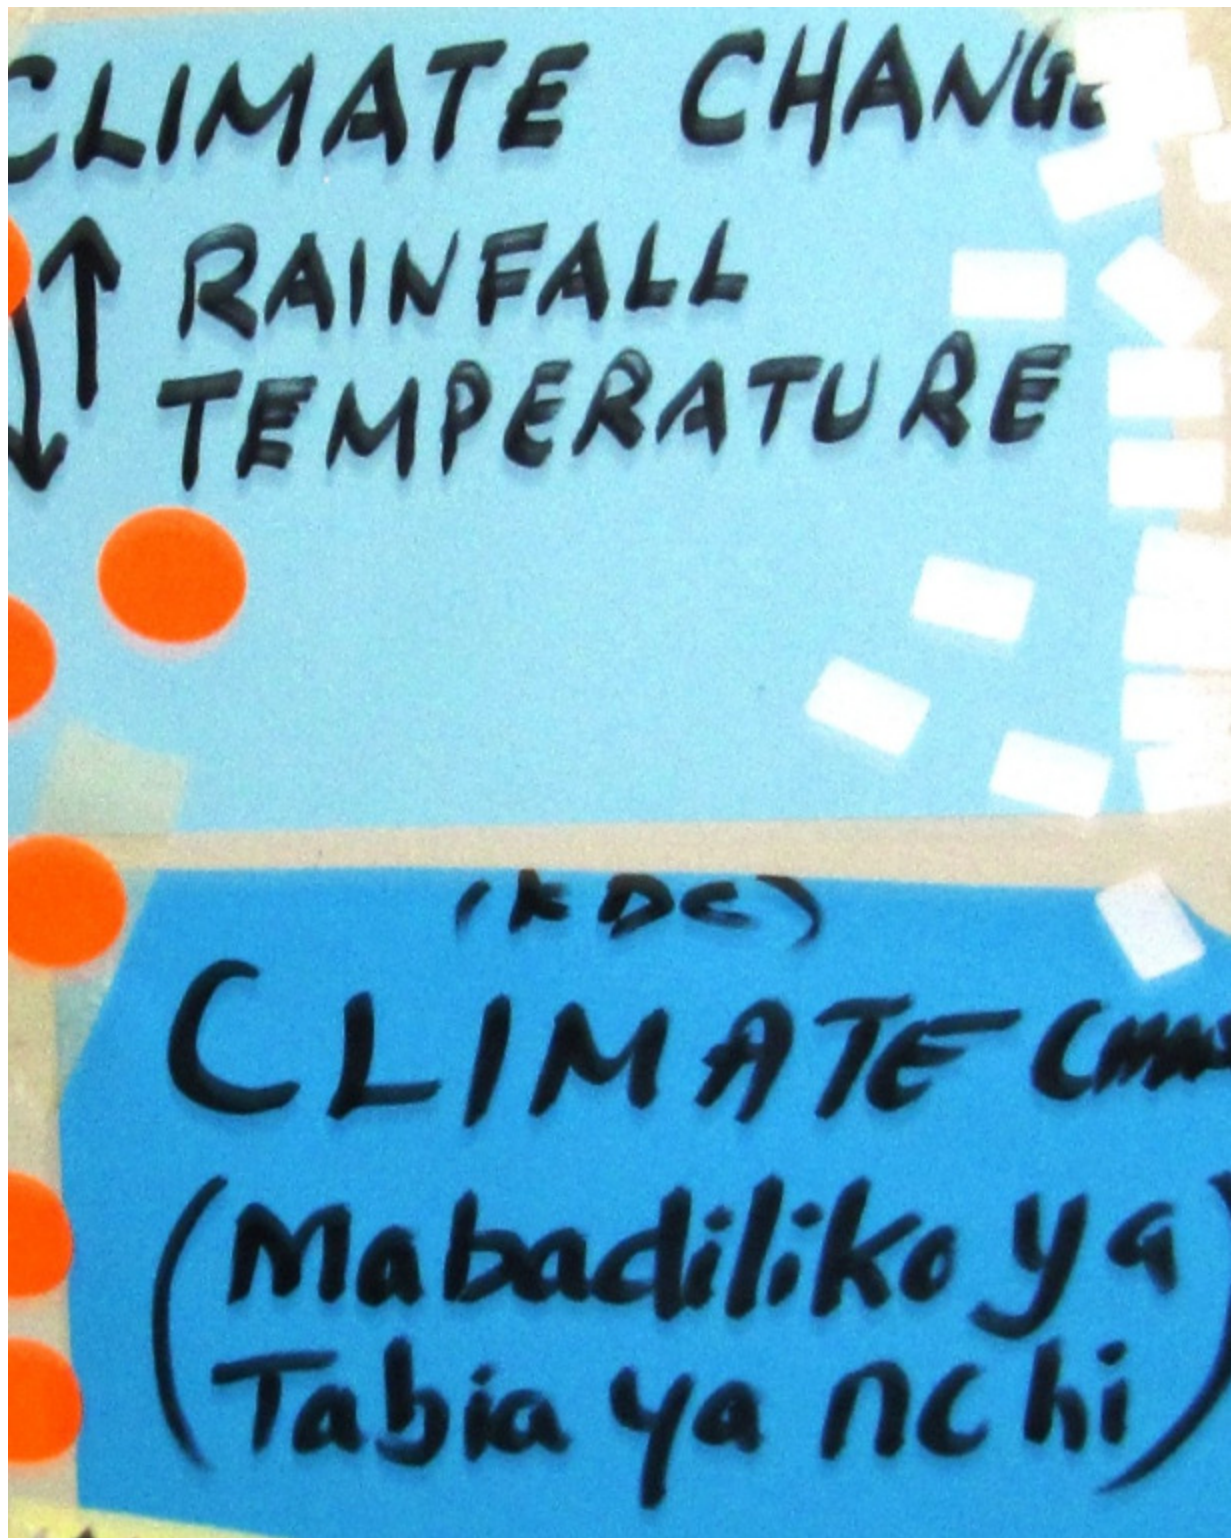 CLIMATE CHANGE
RAINFALL
TEMPERATURE
(KDC)
CLIMATE
(Mabadiliko ya
Tabia ya nchi)